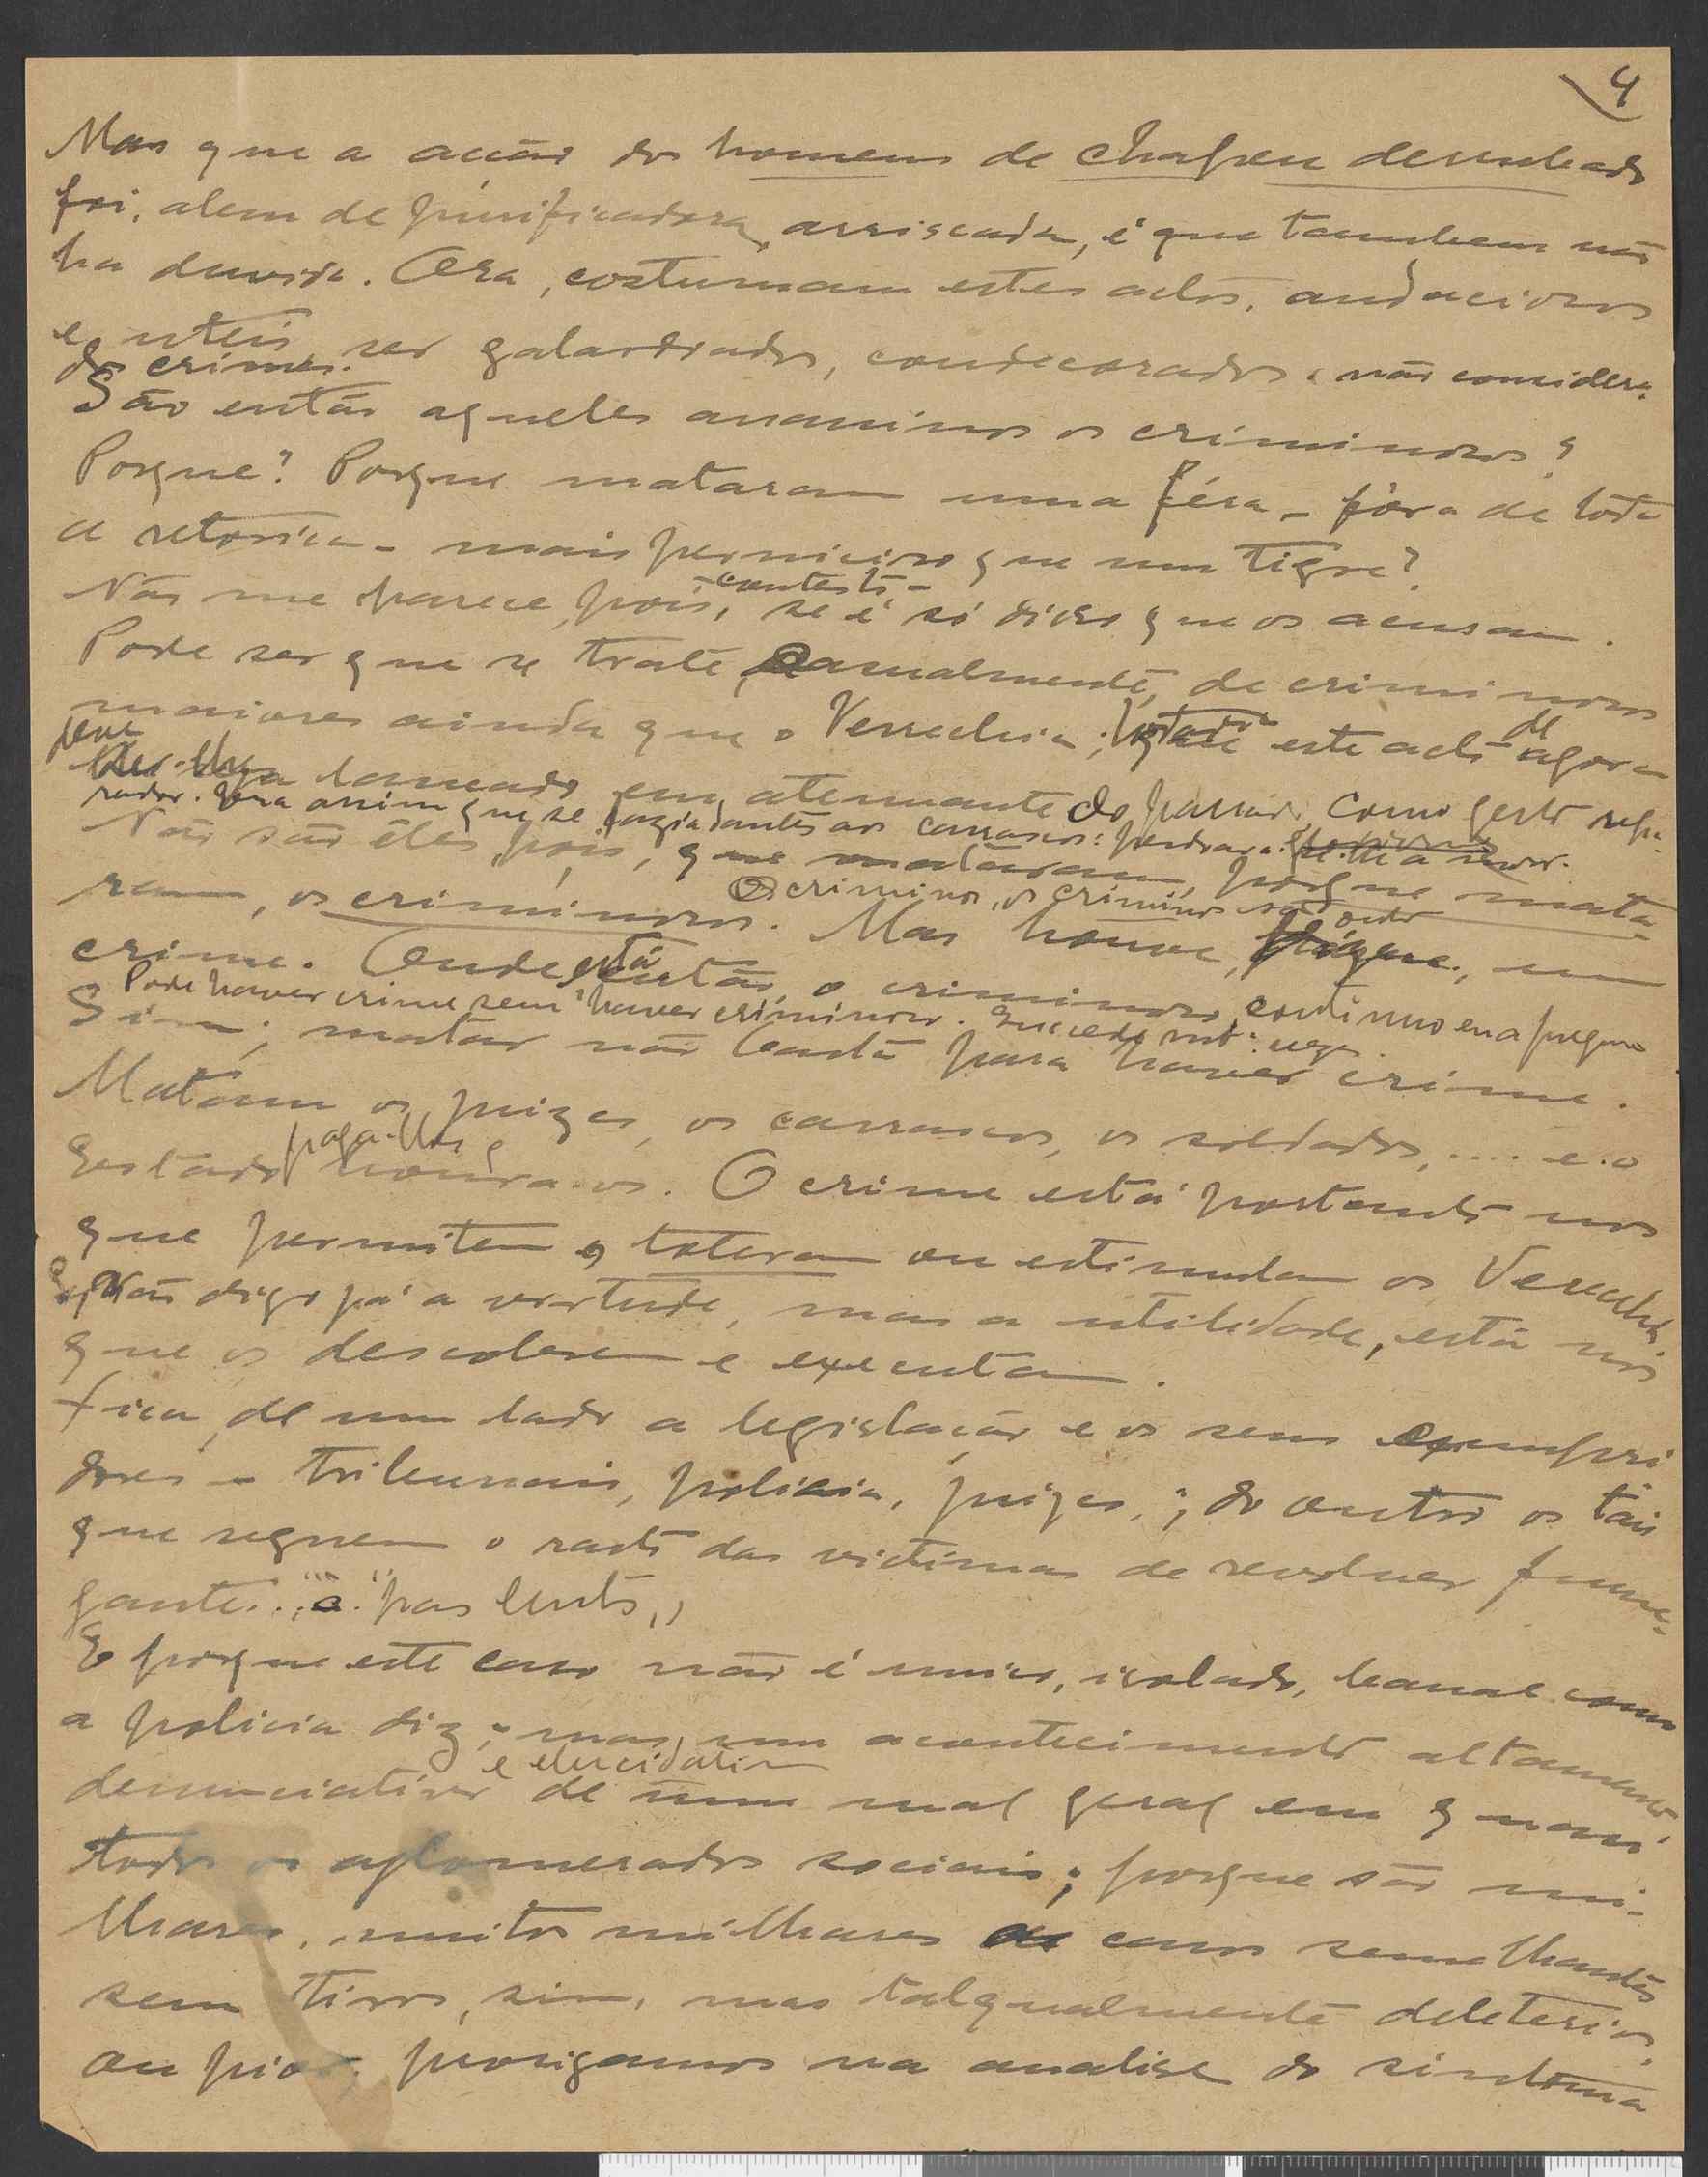 4
Mas que a acção dos homens de chapeu derrubado
foi, alem de purificadora, arriscada, é que tambem não
ha duvida. Ora, costumam estes actos, audaciosos
e uteis ser galardoados, condecorados, não considera-
dos crimes.
São então aqueles anonimos os criminosos?
Porque? Porque mataram uma féra - fóra de toda
a retorica - mais pernicioso que um tigre?
Não me parece, pois, - contesto - se é só disso que os acusam.
Pode ser que se trate, casualmente, de criminosos
maiores ainda que o ; este acto de agora
lançado em atenuante do passado, como gesto repa-
rador. Era assim que se fazia dantes aos carrascos: perdoava-se
Não são êles, pois, que mataram, porque mata-
ram, os criminosos. Mas houve, um
Os criminosos, os criminosos são outros
crime. Onde está então, o criminoso, continuo eu a
Pode haver crime sem haver criminoso. Sucede mt.ª vez.
Sim; matar não basta para haver crime.
Matam os juizes, os carrascos, os soldados, .... e o
Estado paga-lhes e honra-os. O crime está portanto nos
que permitem e toleram ou estimulam os
E, não digo já a virtude, mas a utilidade, está nos
que os descobrem e executam.
Fica, de um lado a legislação e os seus cumpri-
dores - tribunais, policia, juizes, ; do outro os tais
que seguem o rasto das victimas de revolver fume-
gante... "a pas lents"
E porque este caso não é unico, isolado, banal como
a policia diz; mas, um acontecimento altamente
denunciativo e elucidativo de um mal geral em quasi
todos os aglomerados sociais; porque são mi-
lhares, muitos milhares de casos semelhantes
sem tiros, sim, mas talqualmente deleterios
ou pior, prosigamos na analise do sintoma